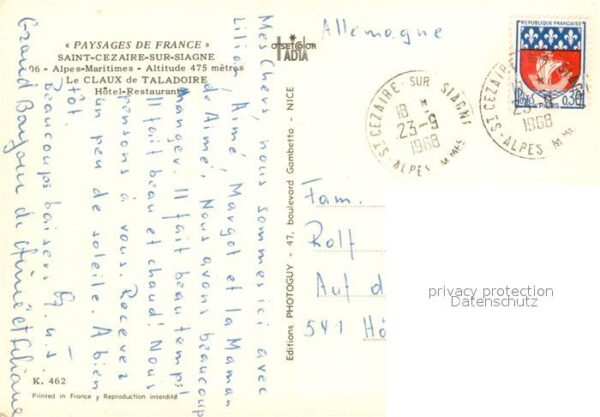 « PAYSAGES DE FRANCE »
SAINT-CEZAIRE-SUR-SIAGNE
06 - Alpes-Maritimes - Altitude 475 mètres
Le CLAUX de TALADOIRE
Hôtel-Restaurant
Mes Chers, nous sommes ici avec
Liliane, Aimé, Margot et la Maman
de Aimé. Nous avons beaucoup
manger. Il fait beau temps!
Il fait beau et chaud! Nous
pensons à vous. Recevez
un peu de soleile. A bien
tôt.
Beaucoup baisers
Grand Bonjour de Aimé et Liliane
K. 462
Printed in France - Reproduction interdite
Editions PHOTOGUY - 47, boulevard Gambetta - NICE
OFFSETCOLOR
IADIA
Allemagne
REPUBLIQUE FRANÇAISE
0,30
ST CEZAIRE SUR SIAGNE
18 H
23-9
1968
ALPES MMES
ST CEZAIRE
23-9
1968
ALPES MMES
Fam.
Rolf
Auf d
541 Hö
privacy protection
Datenschutz